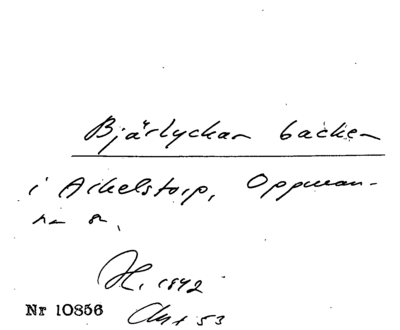 Bjärlyckan backen
i Arkelstorp, Oppman-
na sn.
H. 1842
Nr 10856
53